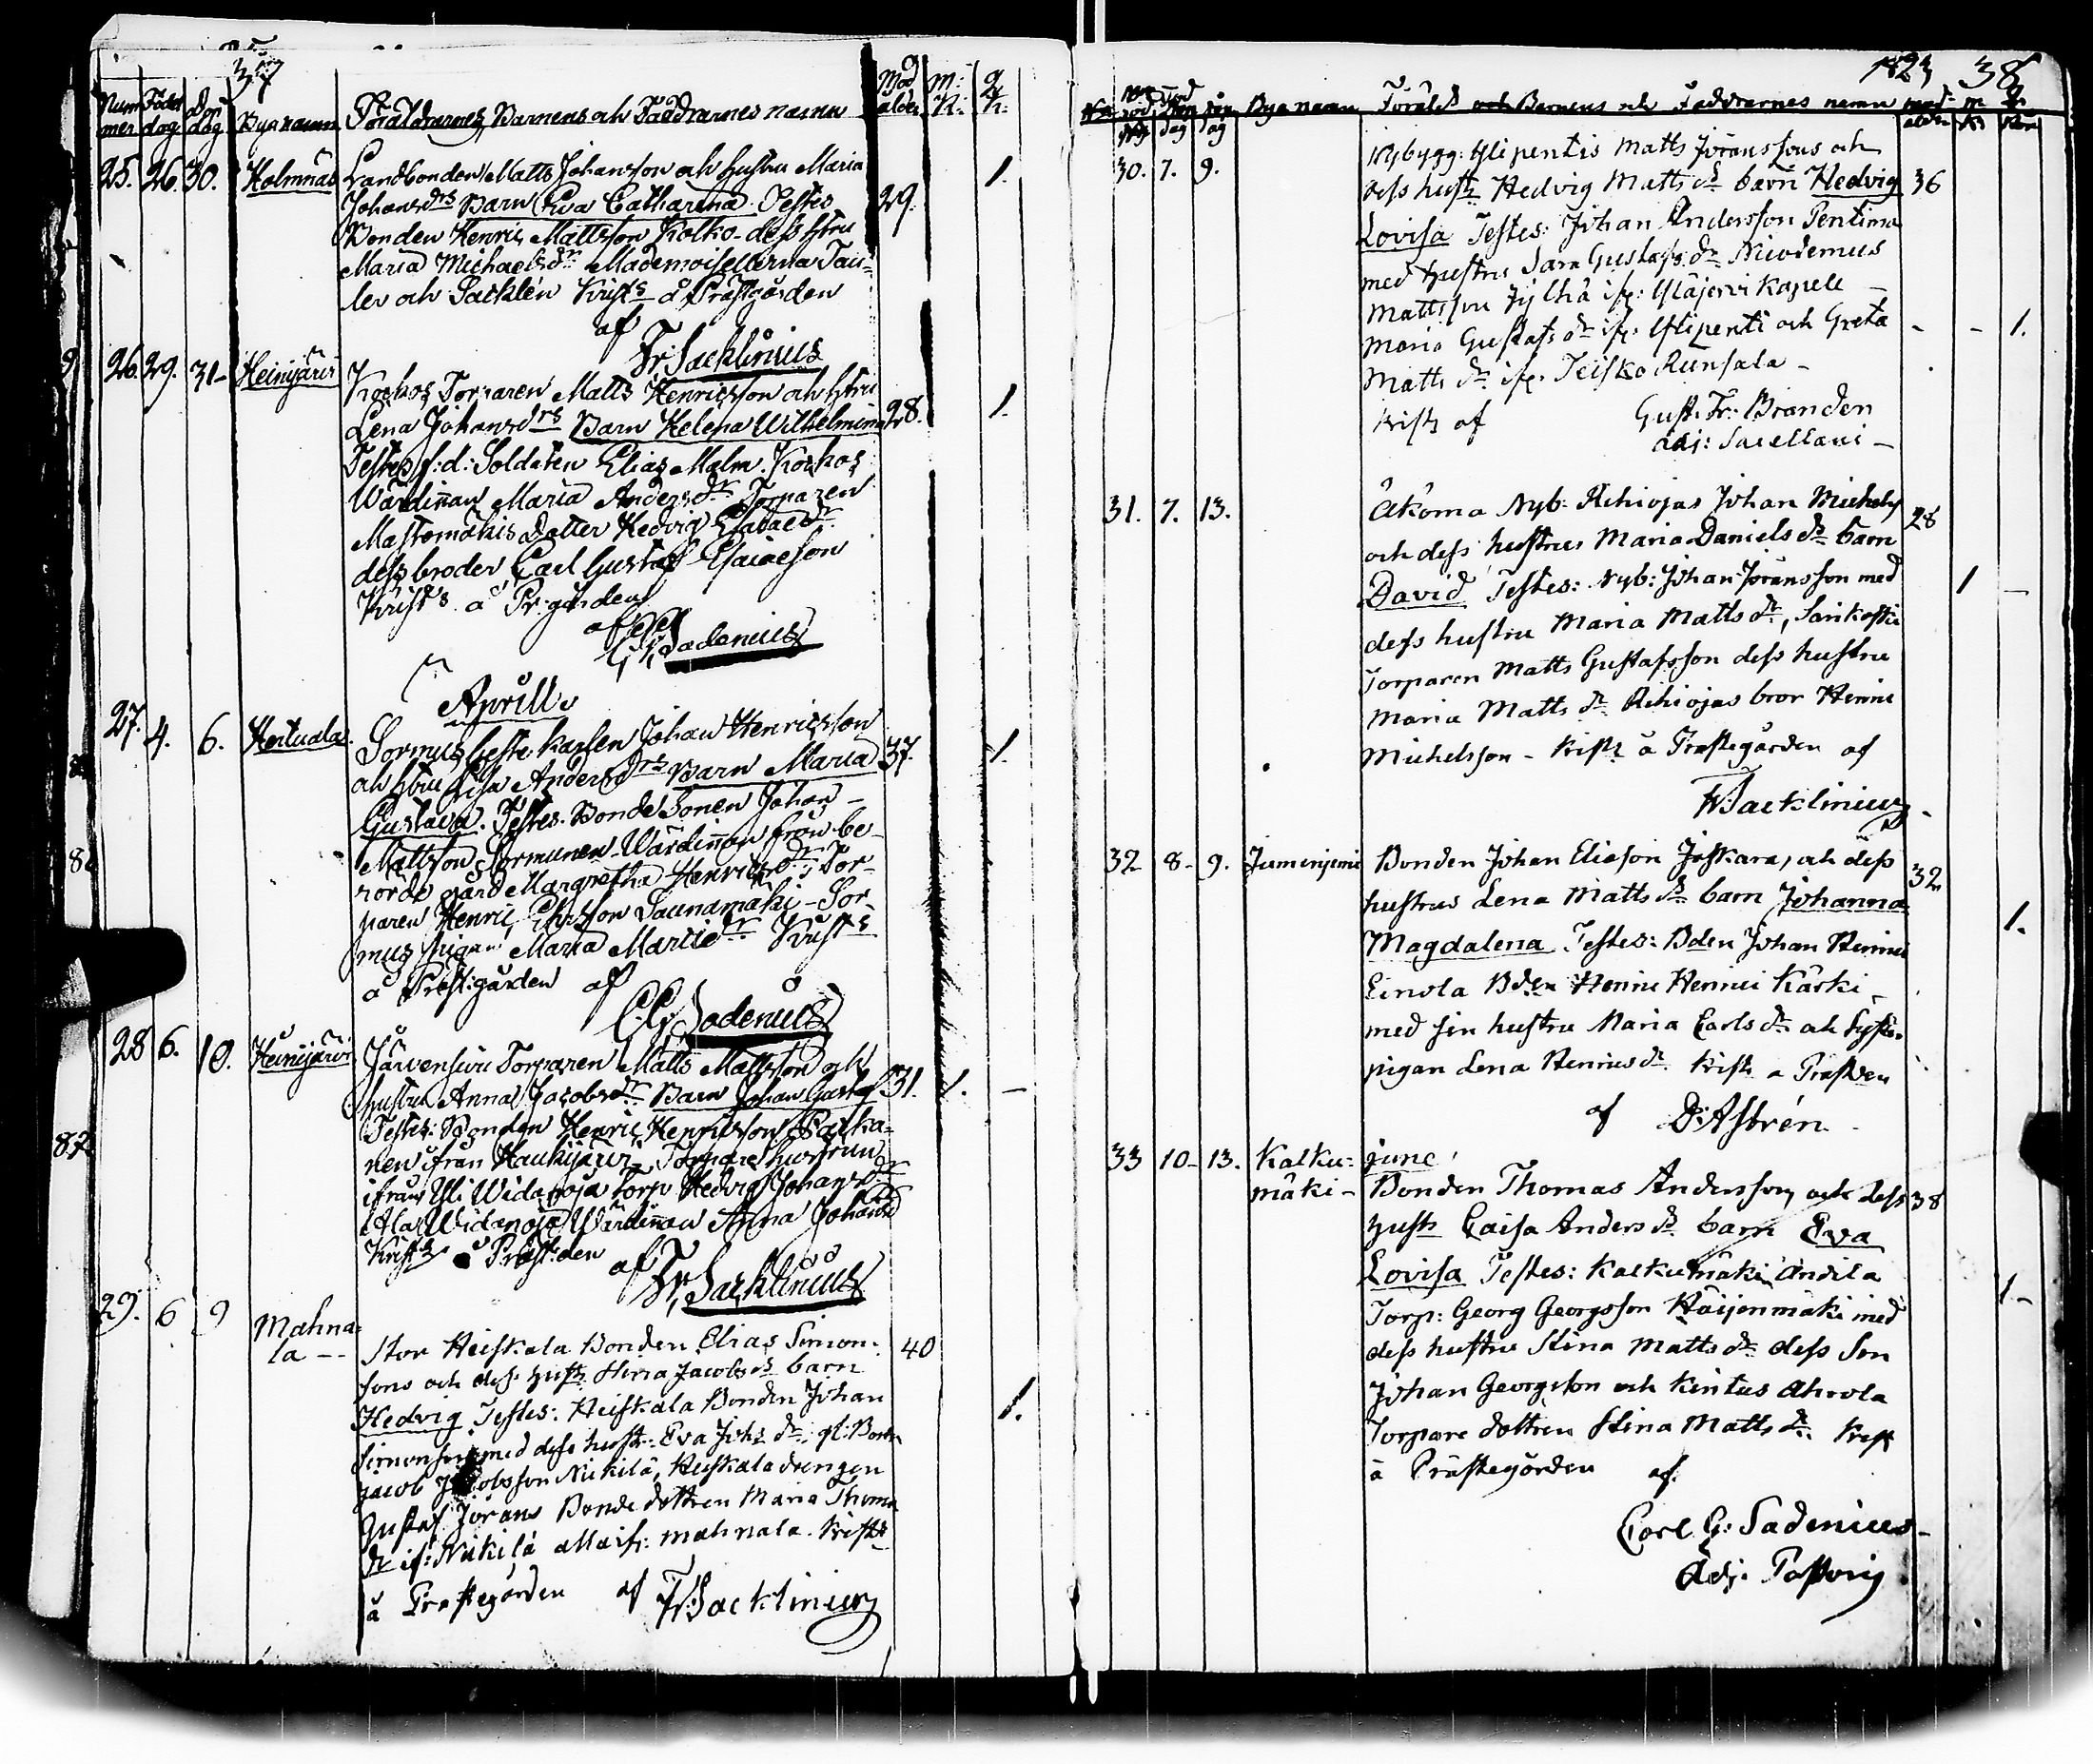 37
Num mer Föd dag D dag Byanamn Föräldrarnes, Barnens och Faddrarnes namn Mod ålder M: K: Q K:
25. 26. 30. Holmnäs Landbonden Matts Johansson och hustru Maria 1.
Johansdrs Barn Eva Catharina. Testes 29.
Bonden Henric Mattsson Kolko - dess hstru
Maria Michaelsdr Mademoisellerna Tau-
ler och Sacklén Krists å Prästgården
af
Fr: Sacklinius
26. 29. 31 - Heinijärvi Koskos Torparen Matts Henricsson och hstru
Lena Johansdrs Barn Helena Wilhelmina 28. 1.
Testes f:d: Soldaten Elias Malm. Koskos
Wärdinnan Maria Andersdr Torparen
Mastomäkis Dotter Hedvig
dess broder Carl Gustaf Esaiæson
Krists å Pr:gården
af
C G Sadenius
Aprill
27. 4. 6. Hertuala. Sormus Johan Henricsson
och hstru Lisa Andersdrs Barn Maria 37. 1.
Gustava. Testes. Bonde Sonen Johan -
Mattsson Sormunen - Wärdinnan från be-
rörde gård Margretha Henricsdr, Tor-
paren Henric Saunamäki - Sor-
mus pigan Maria Krists
å Prest:gården af
C G Sadenius
28 6. 10. Heinijärvi Järvensivu Torparen Matts Mattsson och
hustru Anna Jacobsdr Barn Johan Gustaf 31. 1. -
Testes: Bonden Henric Henricsson
nen ifrån Haukijärvi Torpare hustrun
ifrån Yli Widanoja torp Hedvig Johansdr
Ala Widanoja Wärdinnan Anna Johansd
Krists å Prest:den af
Fr: Sacklinius
29. 6 9 Mahna-
la - - Stor Heiskala Bonden Elias Simon- 40
sons och dess hust Jacobs dr barn
Hedvig Testes: Heiskala Bonden Johan 1.
Simonson med dess hustr: Eva Johs dr: gl: Bon
Jacob Jacobsson Nickilä, Heiskala drengen
Gustaf Jörans Bonde dottren Maria Thoma
dr if: Nickilä Mahnala. Krists
å Prästegården af Fr: Sacklinius
1823 38
No Byanamn Föräld och Barnens och Faddrarnes namn mod ålder
30. 7. 9. Nybygg: Ylipentis Matts Jöranssons och
dess hustr Hedvig Matts dr barn Hedvig 36
Lovisa Testes: Johan Andersson Pentima
med hustru Sara Gustafs dr Nicodemus
Mattsson Jylhä ifr: Kapell -
Maria Gustafs dr ifr: Ylipenti och Greta - - 1.
Matts dr ifr: Teisko Runsala -
Krists af Gust. Fr: Brander
adj: Sacellani -
31. 7. 13. Nyb: Rihiojas Johan Michels 28
och dess hustrus Maria Daniels dr barn
David Testes: Nyb: Johan Jöransson med 1 -
dess hustru Maria Matts dr, Sarikoski
Torparen Matts Gustafsson dess hustru
Maria Matts dr Rihiojas bror Henric
Michelsson - Krists å Prästegården af
Fr Sacklinius
32 8 - 9. Jumesniemi Bonden Johan Eliason Joskara, och dess 32
hustrus Lena Matts dr barn Johanna
Magdalena Testes: Bden Johan Henrici 1.
Einola Bden Henric Henrici Kärki
med sin hustru Maria Carls dr och
pigan Lena Henricsdr Krists a Prästden
af D: Astrén
33 10 - 13. Kalku- june
mäki - Bonden Thomas Andersson, och dess 38
husts Caisa Anders dr barn Eva
Lovisa Testes: Kalkumäki Andila 1 -
Torp: Georg Georgsson Häijenmäki med
dess hustru Stina Matts dr dess Son
Johan Georgsson och Kintus Ahrola
Torpare dottren Stina Matts dr. Krist
å Prästegården af
Carl G: Sadenius -
Adj. Pastoris